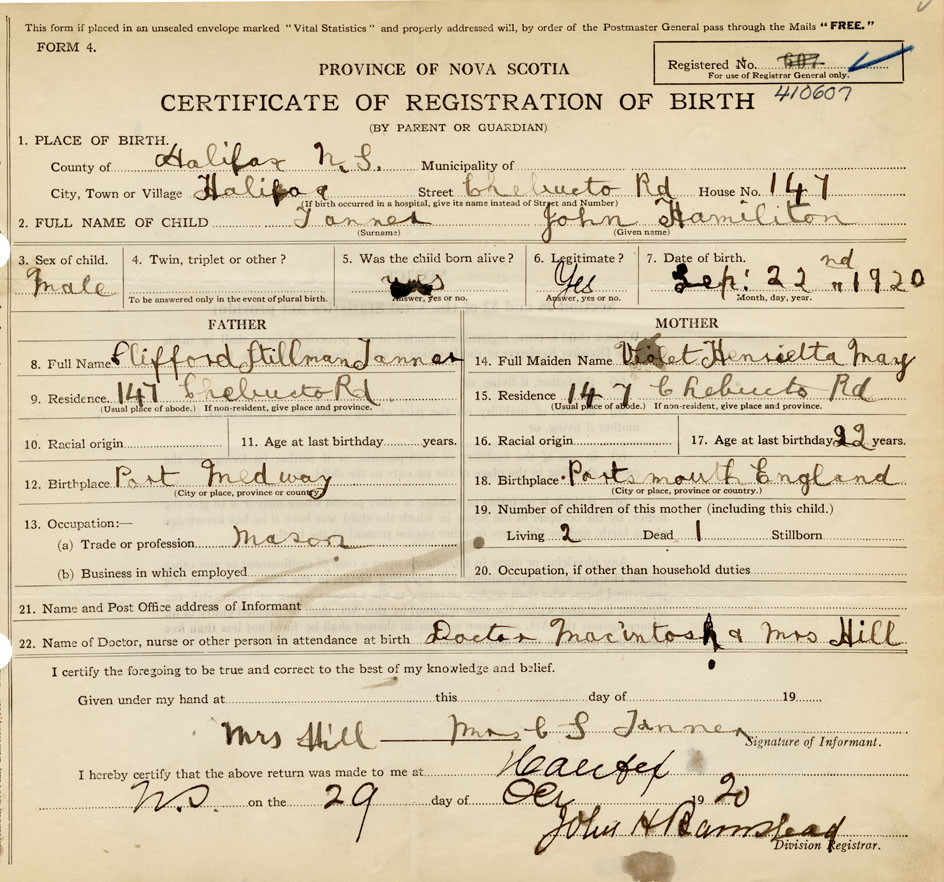 This form if placed in an unsealed envelope marked "Vital Statistics" and properly addressed will, by order of the Postmaster General pass through the Mails "FREE."
FORM 4.
Registered No. 607
For use of Registrar General only.
410607
PROVINCE OF NOVA SCOTIA
CERTIFICATE OF REGISTRATION OF BIRTH
(BY PARENT OR GUARDIAN)
1. PLACE OF BIRTH.
County of Halifax N.S. Municipality of
City, Town or Village Halifax Street Chebucto Rd House No. 147
(If birth occurred in a hospital, give its name instead of Street and Number)
2. FULL NAME OF CHILD Tanner John Hamiliton
(Surname) (Given name)
3. Sex of child. 4. Twin, triplet or other ? 5. Was the child born alive ? 6. Legitimate ? 7. Date of birth.
Male yes Yes Sep: 22nd " 1920
To be answered only in the event of plural birth. Answer, yes or no. Answer, yes or no. Month, day, year.
FATHER MOTHER
8. Full Name Clifford Stillman Tanner 14. Full Maiden Name Violet Henrietta May
9. Residence. 147 Chebucto Rd 15. Residence 147 Chebucto Rd
(Usual place of abode.) If non-resident, give place and province. (Usual place of abode.) If non-resident, give place and province.
10. Racial origin 11. Age at last birthday years. 16. Racial origin 17. Age at last birthday 22 years.
12. Birthplace Port Medway 18. Birthplace Portsmouth England
(City or place, province or country) (City or place, province or country.)
13. Occupation:— 19. Number of children of this mother (including this child.)
(a) Trade or profession Mason Living 2 Dead 1 Stillborn
(b) Business in which employed 20. Occupation, if other than household duties
21. Name and Post Office address of Informant
22. Name of Doctor, nurse or other person in attendance at birth Doctor Macintosh & Mrs Hill
I certify the foregoing to be true and correct to the best of my knowledge and belief.
Given under my hand at this day of 19
Mrs Hill Mrs C S Tanner
Signature of Informant.
I hereby certify that the above return was made to me at Halifax
N.S. on the 29 day of Oct 1920
John H Barnstead
Division Registrar.